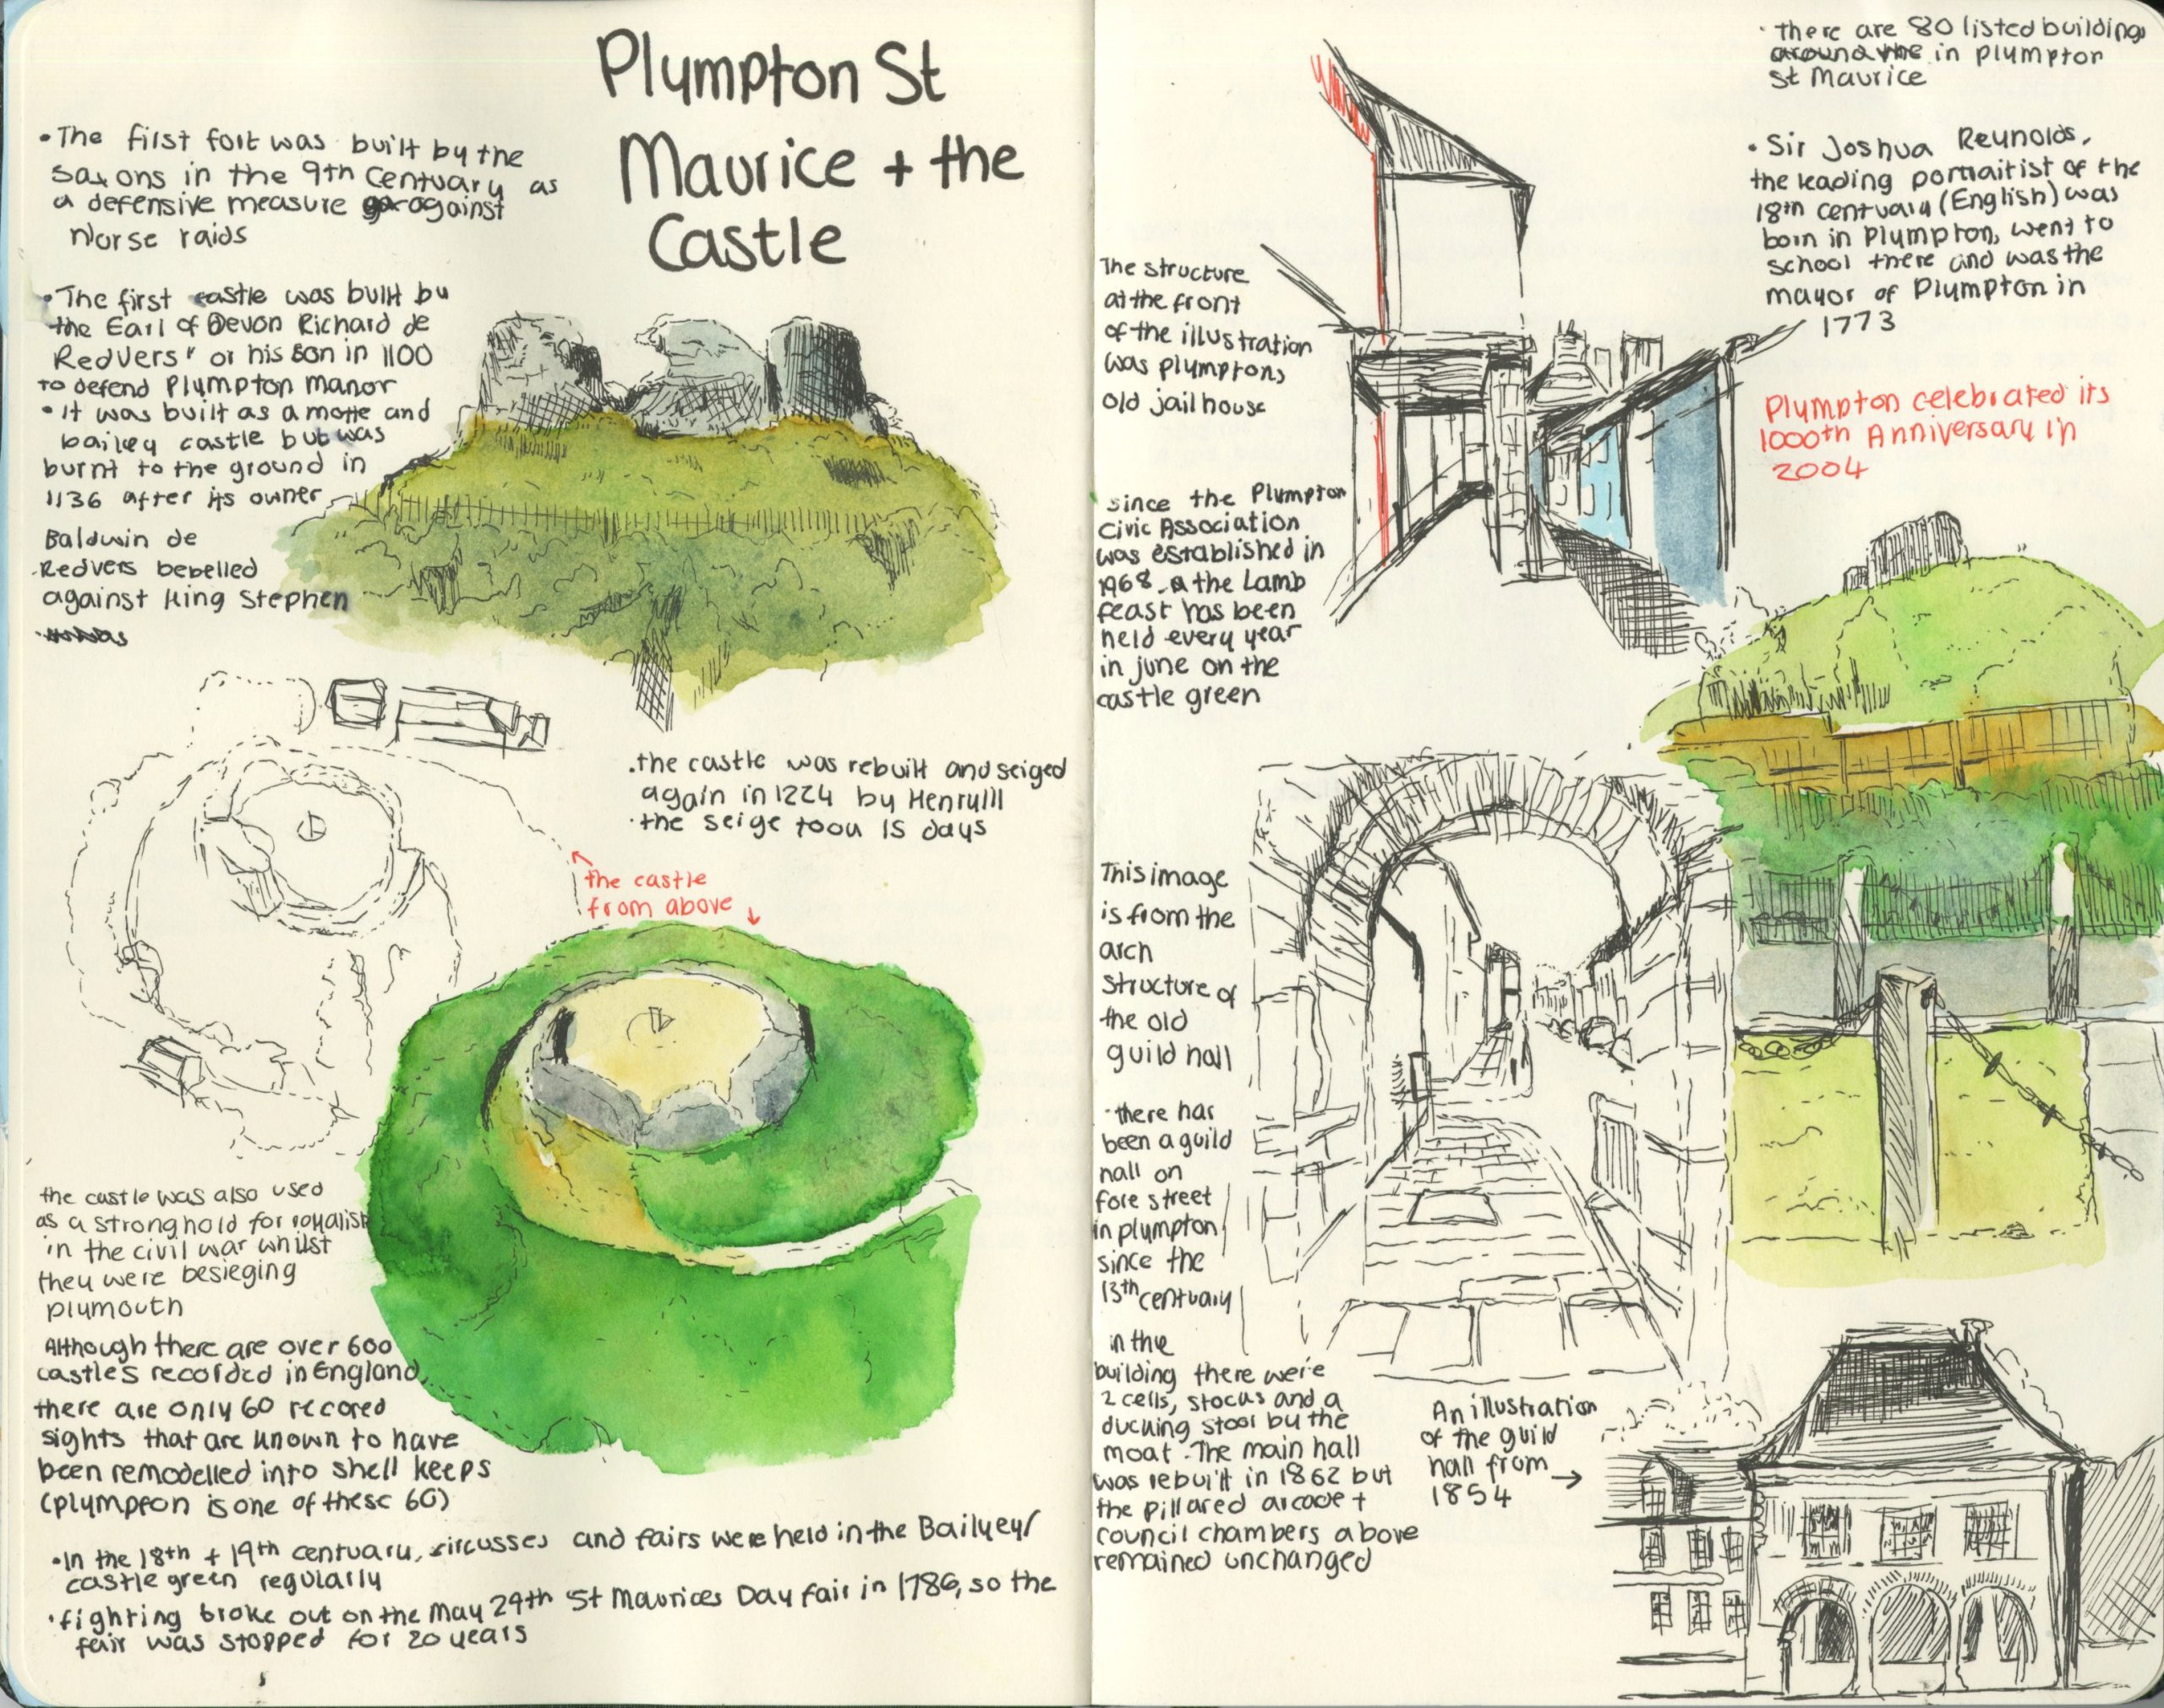 Plympton St
Maurice + the
Castle
•The first fort was built by the
Saxons in the 9th Centuary as
a defensive measure against
Norse raids
•The first castle was built by
the Earl of Devon Richard de
Redvers" or his son in 1100
to defend Plympton Manor
•It was built as a motte and
bailey castle but was
burnt to the ground in
1136 after its owner
Baldwin de
Redvers bebelled
against King Stephen
.the castle was rebuilt and seiged
again in 1224 by Henry III
•the seige took 15 days
the castle
from above
the castle was also used
as a stronghold for royalist
in the civil war whilst
they were besieging
plymouth
Although there are over 600
castles recorded in England
there are only 60 recored
sights that are known to have
been remodelled into shell keeps
(plympton is one of these 60)
•In the 18th + 19th centuary, circusses and fairs were held in the Bailyey/
castle green regularly
•fighting broke out on the May 29th St Maurices Day fair in 1786, so the
fair was stopped for 20 years
The structure
at the front
of the illustration
was plymptons
old jailhouse
since the Plympton
Civic Association
was established in
1968 the Lamb
feast has been
held every year
in june on the
castle green
This image
is from the
arch
structure of
the old
guild hall
•there has
been a guild
hall on
fore street
in plympton
since the
13th centuary
in the
building there were
2 cells, stocks and a
ducking stool by the
moat. The main hall
was rebuilt in 1862 but
the pillared arcade +
council chambers above
remained unchanged
An illustration
of the guild
hall from
1854
•there are 80 listed buildings
around the in plympton
St Maurice
•Sir Joshua Reynolds,
the leading portraitist of the
18th centuary (English) was
born in Plympton, went to
school there and was the
mayor of Plympton in
1773
Plympton celebrated its
1000th Anniversary in
2004